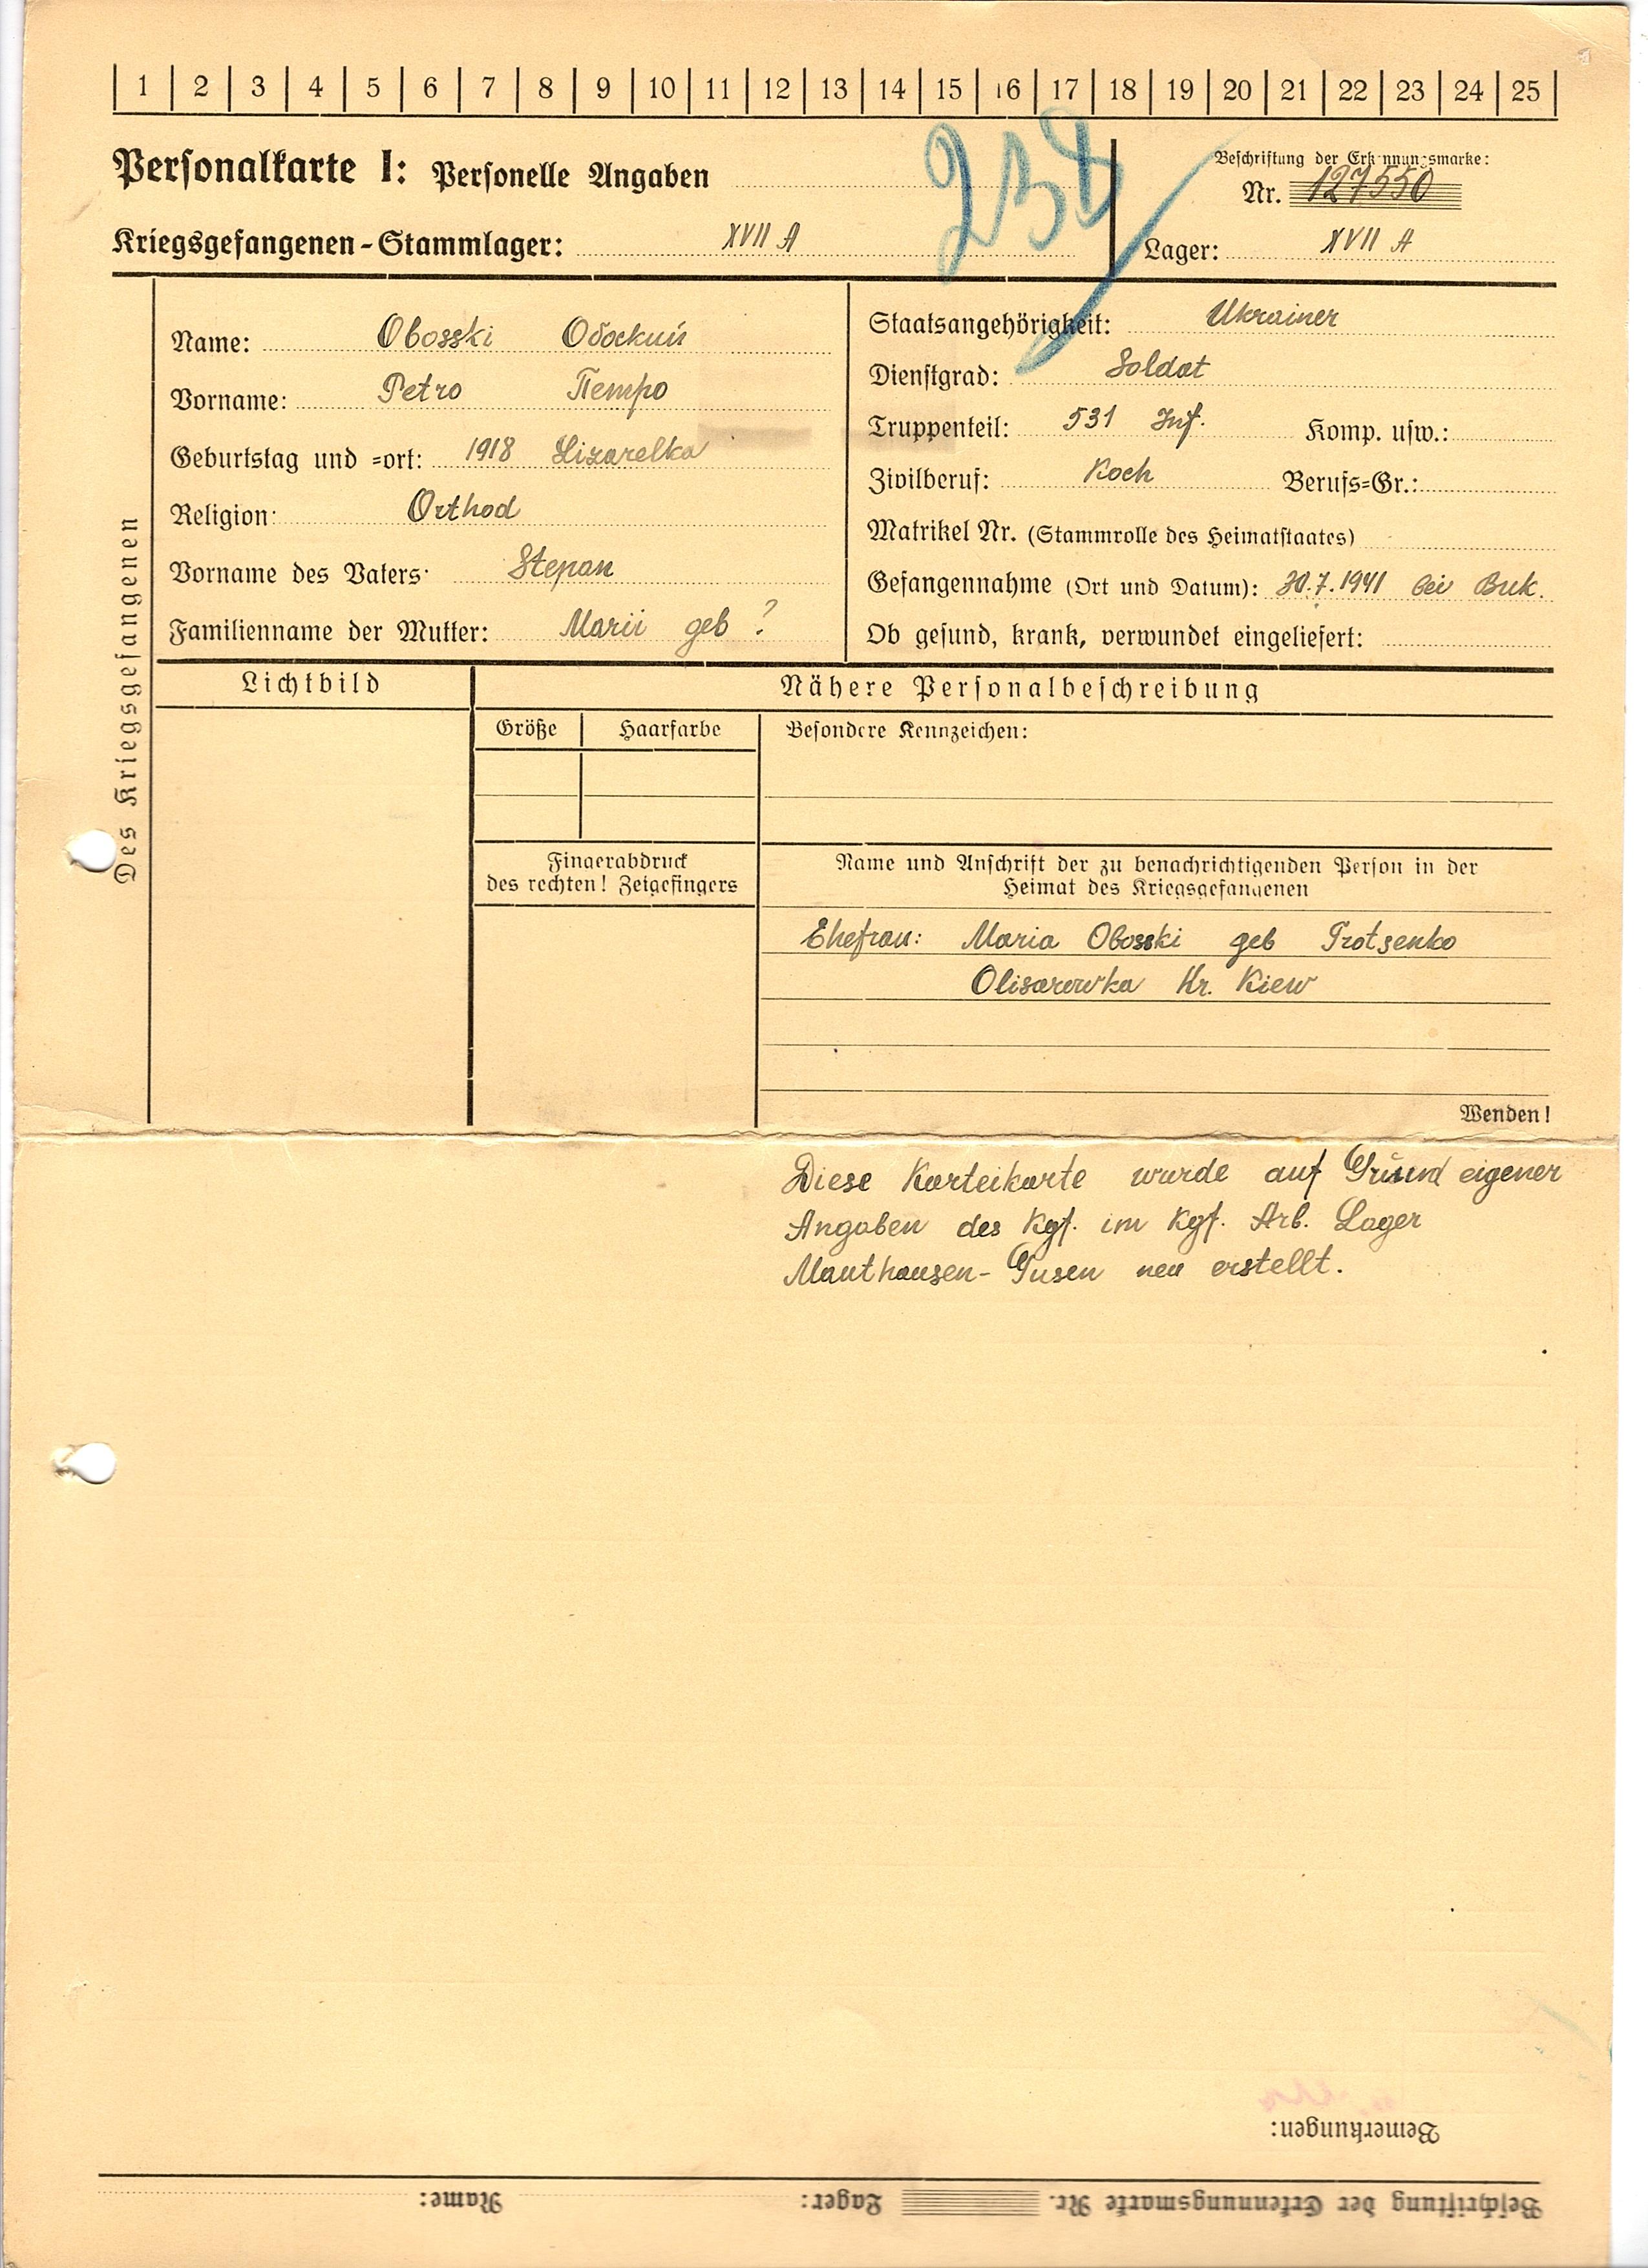 1 2 3 4 5 6 7 8 9 10 11 12 13 14 15 16 17 18 19 20 21 22 23 24 25
Personalkarte I: Personelle Angaben
Beschriftung der Erkennungsmarke:
Nr. 127550
Kriegsgefangenen-Stammlager: XVII A
Lager: XVII A
Des Kriegsgefangenen
Name: Obosski Обоский
Vorname: Petro Петро
Geburtstag und =ort: 1918 Lizarelka
Religion: Orthod
Vorname des Vaters: Stepan
Familienname der Mutter: Marii geb ?
Staatsangehörigkeit: Ukrainer
Dienstgrad: Soldat
Truppenteil: 531 Inf. Komp. usw.:
Zivilberuf: Koch Berufs=Gr.:
Matrikel Nr. (Stammrolle des Heimatstaates)
Gefangennahme (Ort und Datum): 30.7.1941 bei Buk.
Ob gesund, krank, verwundet eingeliefert:
Lichtbild
Nähere Personalbeschreibung
Größe Haarfarbe Besondere Kennzeichen:
Fingerabdruck
des rechten! Zeigefingers
Name und Anschrift der zu benachrichtigenden Person in der
Heimat des Kriegsgefangenen
Ehefrau: Maria Obosski geb Trotsenko
Olisarowka Kr. Kiew
Wenden!
Diese Karteikarte wurde auf Grund eigener
Angaben des Kgf. im Kgf. Arb. Lager
Mauthausen-Gusen neu erstellt.
Bemerkungen:
Beschriftung der Erkennungsmarke Nr. Lager: Name: